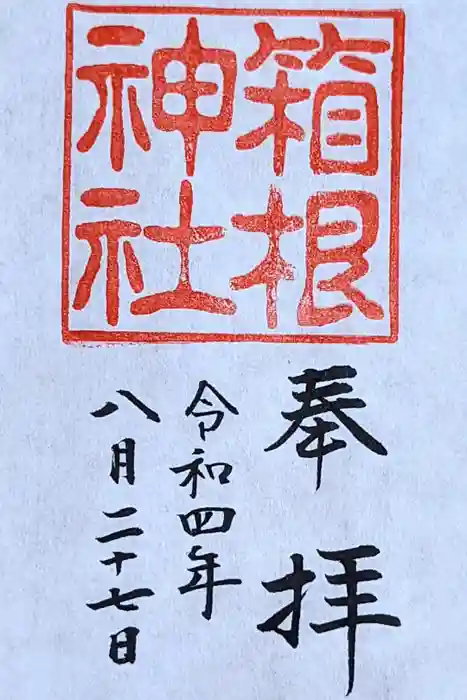 箱根
神社
奉拝
令和四年
八月二十七日